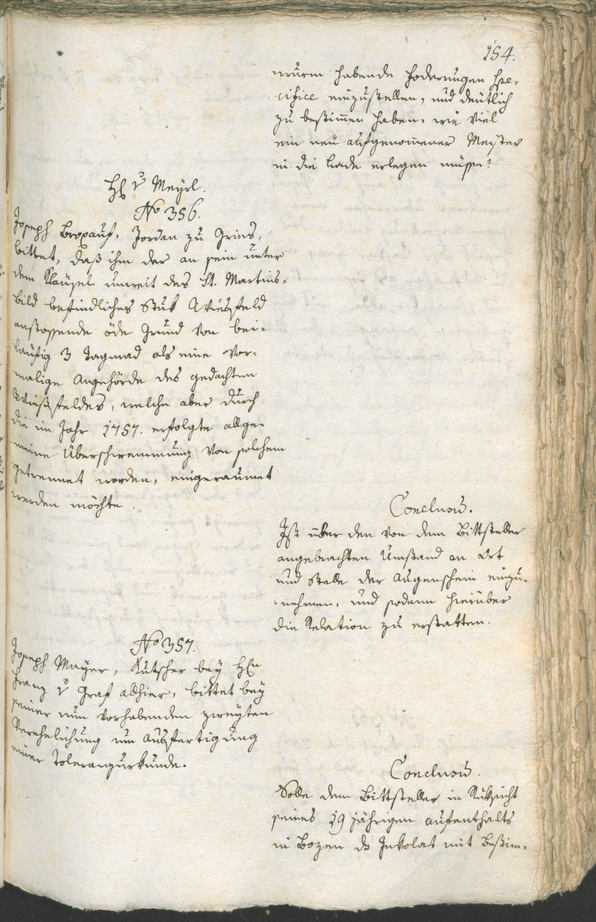 154.
nurm habende Foderungen spe-
cifice einzustellen, und deutlich
zu bestimen haben, wie viel
ein neu aufgenomener Meister
in die Lade erlegen müße?
H. v Meyrl.
No 356.
Joseph Broxauf, Jordan zu Gries,
bittet, daß ihm der an sein unter
dem Kaüsel unweit des St. Martins-
bild befindliches Stuk Wiesfeld
anstossende öde Grund von bei-
läufig 3 Tagmad als eine vor-
malige Angehörde des gedachten
Wießfeldes, welche aber durch
die im Jahr 1757. erfolgte allge-
meine Überschwemmung von solchem
getrennet worden, eingeraumet
werden möchte.
Conclusum.
Ist über den von dem Bittsteller
angebrachten Umstand an Ort
und Stelle der Augenschein einzu-
nehmen, und sodann hierüber
die Relation zu erstatten.
No 357.
Joseph Mayer, Kutscher bey Hn
Franz v Graf alhier, bittet bey
seiner nun vorhabenden zweyten
Verehelichung um Ausfertigung
einer Toleranzurkunde.
Conclusum.
Solle dem Bittsteller in Rüksicht
seines 19 jährigen aufenthalts
in Bozen das Inkolat mit Bestim-